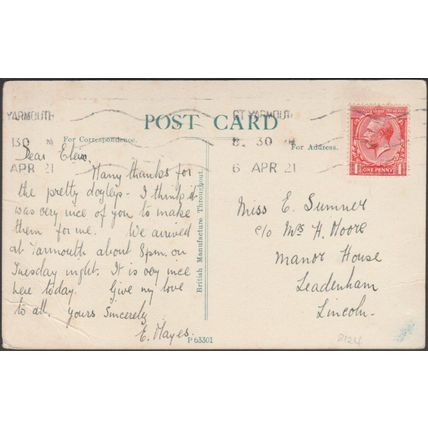 YARMOUTH
GT YARMOUTH
POST CARD
130
8. 30
For Correspondence.
For Address.
6 APR 21
APR 21
ONE PENNY
Dear Elsie.
Many thanks for
the pretty doyleys - I think it
was very nice of you to make
them for me. We arrived
at Yarmouth about 8pm. on
Tuesday night. It is very nice
here today. Give my love
to all, Yours Sincerely
E. Mayes.
British Manufacture Throughout.
P 63301
Miss E. Sumner
c/o Mrs H. Moore
Manor House
Leadenham
Lincoln.